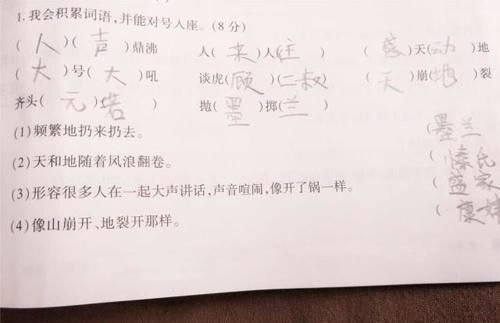 1.我会积累词语,并能对号入座。(8分)
(人)(声)鼎沸 人(来)人(往) (惑)天(动)地
(大)号(大)吼 谈虎(顾)(二叔) (天)崩(地)裂
齐头(元)(若) 抛(墨)掷(兰)
(1)频繁地扔来扔去。 (墨兰
(2)天和地随着风浪翻卷。 (懔氏
(3)形容很多人在一起大声讲话,声音喧闹,像开了锅一样。 (盛家
(4)像山崩开、地裂开那样。 (康